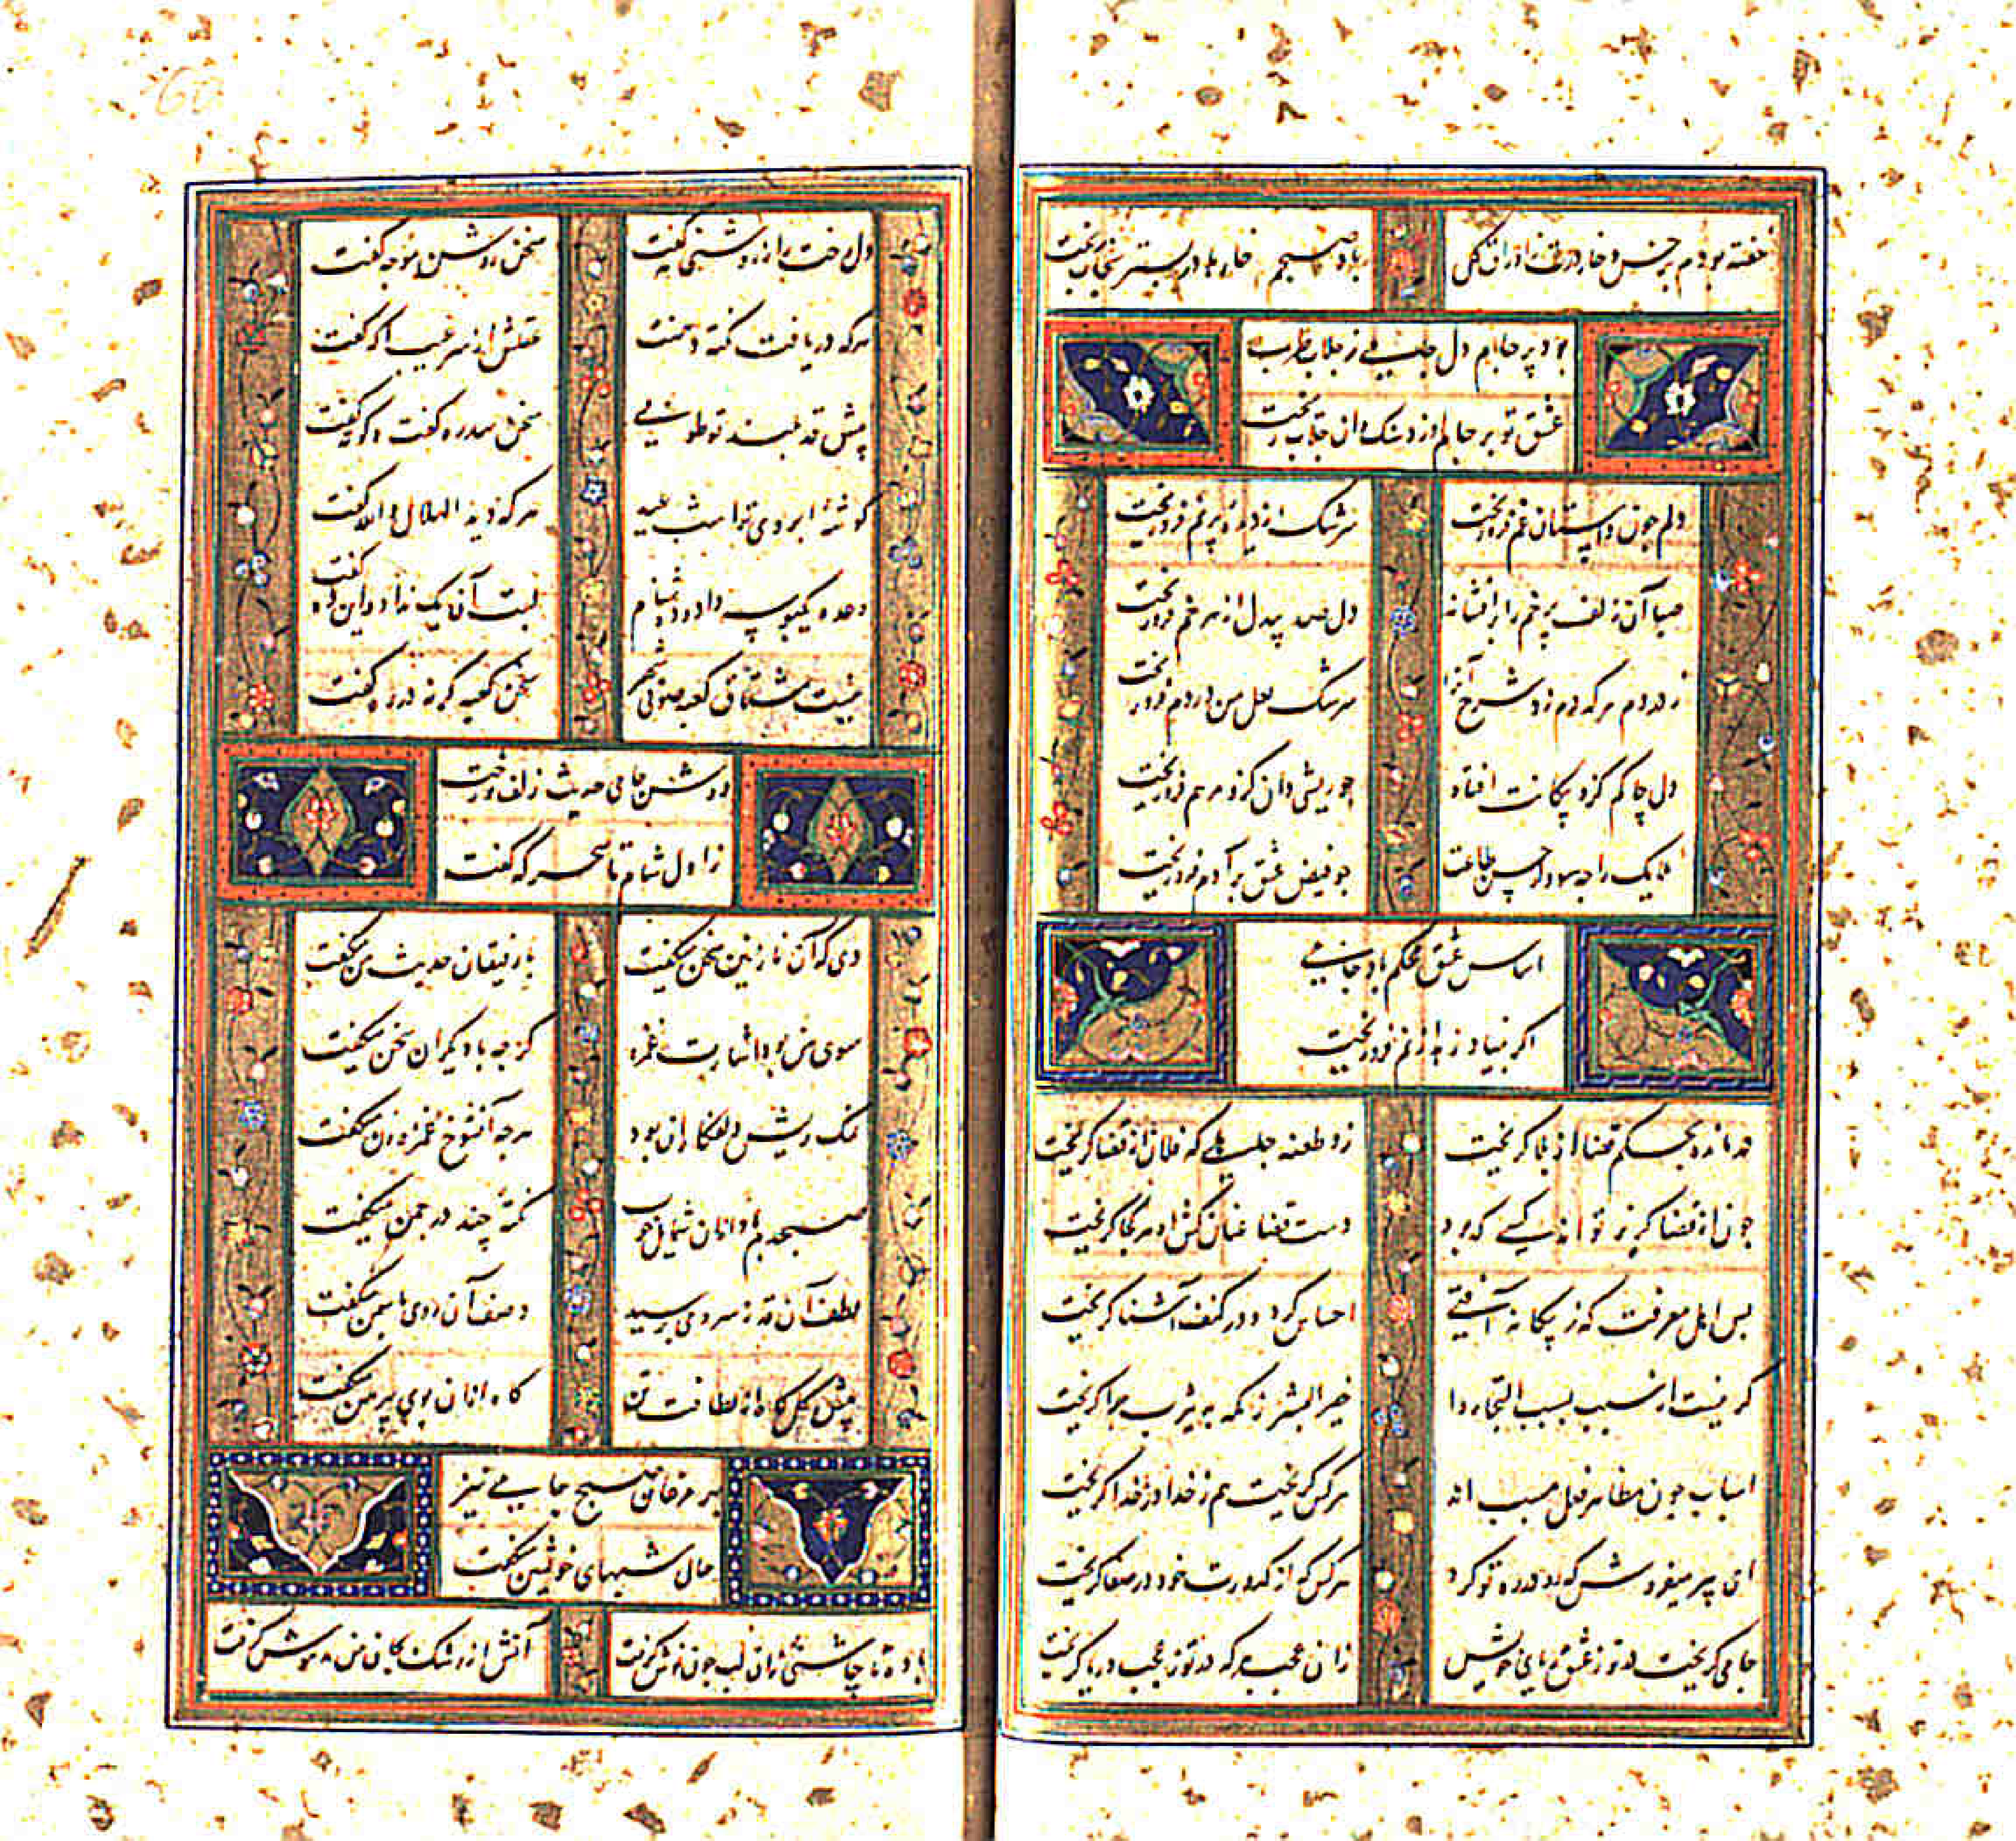 خفته بودم بر خس و خار درت از اوراق گل
باد صبحم خارها در بستر سنجاب ریخت
بود پر جام دل جامی ز جلاب طرب
عشق تو بر جام او زد سنگ و آن جلاب ریخت
دلم چون داستان غم فرو ریخت
سرشک از دیده پر نم فرو ریخت
صبا آن زلف پر خم را برافشاند
دل صد بیدل از هر خم فرو ریخت
ز دردم هر که دم زد شرح آنرا
سرشک لعل من در دم فرو ریخت
دل چاکم کزو پیکانت افتاد
چو ریشی دان کزو مرهم فرو ریخت
ملایک را چه سود از حسن طاعت
چو فیض عشق بر آدم فرو ریخت
اساس عشق محکم باد جامی
اگر بنیاد زهد از هم فرو ریخت
زد طعنه جاهلی که فلان از قضا گریخت
چون از قضا گریزد تواند کسی که بود
دست قضا عنان کش او هر کجا گریخت
بس اهل معرفت که ز بیگانه آفتی
احساس کرد و در کنف آشنا گریخت
گر نیست از سبب بسبب التجا روا
خیر البشر ز مکه به یثرب چرا گریخت
اسباب چون مظاهر فعل مسبب اند
هر کس گریخت هم ز خدا در خدا گریخت
ای پیر میفروش که رو در ره تو کرد
هر کس که از کدورت خود در صفا گریخت
جامی گریخت در تو ز عشق ریای خویش
زان عجب به که در تو ز عجب و ریا گریخت
دل رخت را ز روشنی مه گفت
سخن روشن و موجه گفت
هر که دریافت نکته دهنت
عقلش از سر غیب آگه گفت
پیش قد بلند تو طوبی
سخن سدره گفت و کوته گفت
گوشه ابروی ترا شب عید
هر که دید الهلال والله گفت
وعده یک بوسه داد و دشنام
لبت آن یک نداد و این ده گفت
نیست مشتاق کعبه صوفی شهر
سخن کعبه گرچه در ره گفت
دوش جامی حدیث زلف و رخت
ز اول شام تا سحرگه گفت
دی که آن نازنین سخن میگفت
با رفیقان حدیث من میگفت
سوی من بود اشارت غمزه
گرچه با دیگران سخن میگفت
نمک ریش دلفکاران بود
هر چه آن شوخ غمزه زن میگفت
صبحدم با دانان شمایل خوب
نکته چند در چمن میگفت
لطف آن قد ز سرو می پرسید
وصف آن روی با سمن میگفت
پیش گل گاه از لطافت تن
گاه از آن بوی پیرهن میگفت
بر مرغان صبح جامی نیز
حال شبهای خویشتن میگفت
باده تا چاشنیی زان لب چون نوش گرفت
آتش از رشک بجان من مدهوش گرفت